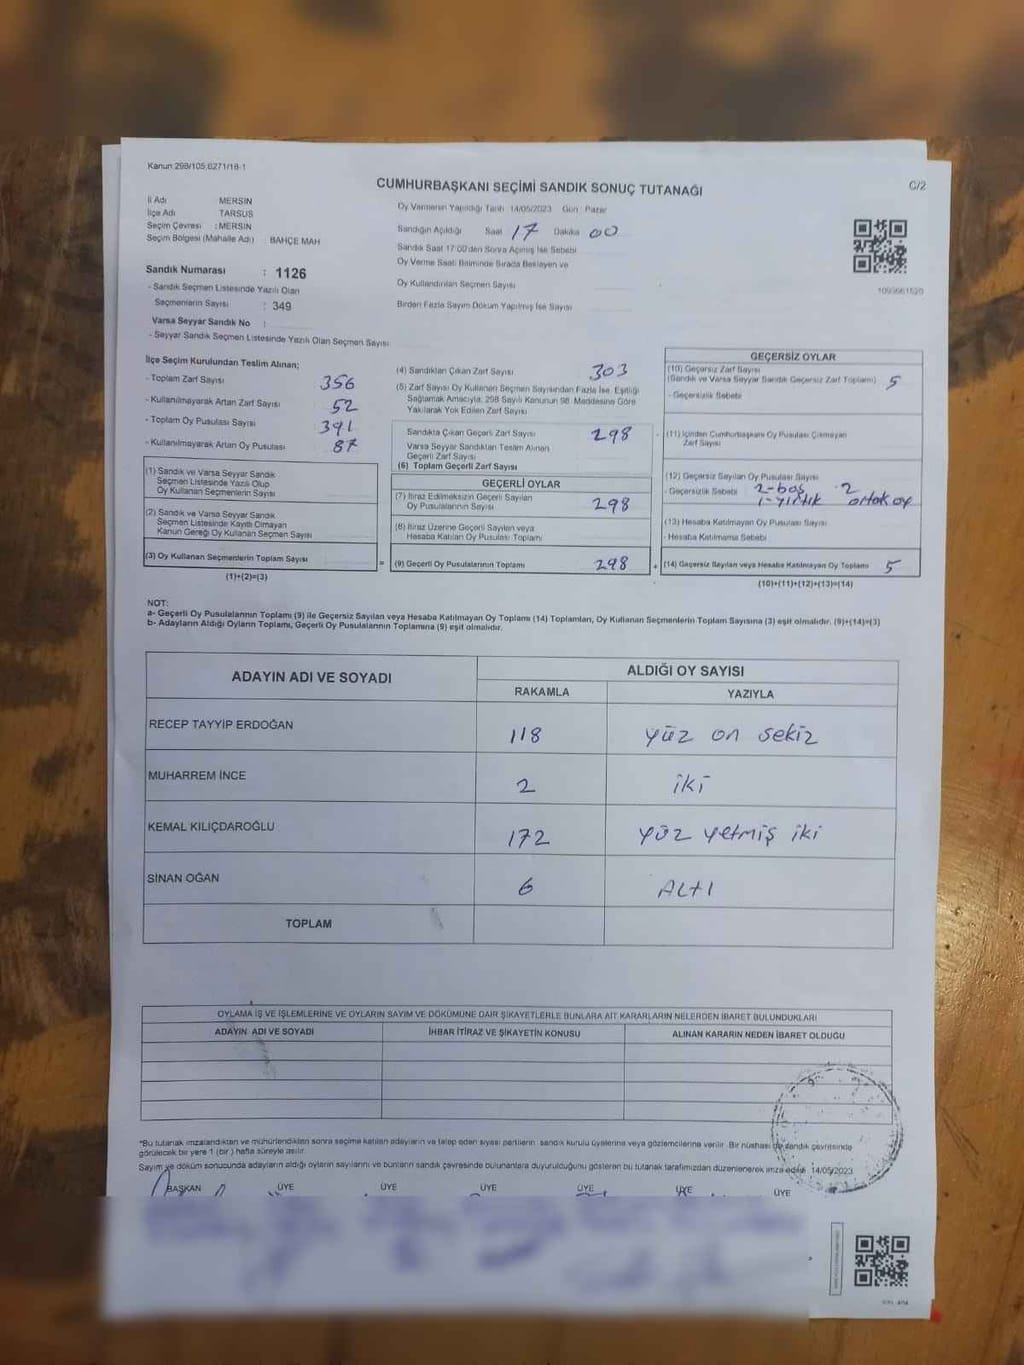 Kanun 298/105;6271/18-1
C/2
CUMHURBAŞKANI SEÇİMİ SANDIK SONUÇ TUTANAĞI
İl Adı MERSIN
İlçe Adı TARSUS
Seçim Çevresi : MERSIN
Seçim Bölgesi (Mahalle Adı) BAHÇE MAH
Sandık Numarası : 1126
- Sandık Seçmen Listesinde Yazılı Olan
Seçmenlerin Sayısı : 349
Varsa Seyyar Sandık No :
- Seyyar Sandık Seçmen Listesinde Yazılı Olan Seçmen Sayısı
Oy Vermenin Yapıldığı Tarih 14/05/2023 Gün : Pazar
Sandığın Açıldığı Saat 17 Dakika 00
Sandık Saat 17:00'den Sonra Açılmış İse Sebebi
Oy Verme Saati Bitiminde Sırada Bekleyen ve
Oy Kullandırılan Seçmen Sayısı
Birden Fazla Sayım Döküm Yapılmış İse Sayısı
1093661520
İlçe Seçim Kurulundan Teslim Alınan;
- Toplam Zarf Sayısı 356
- Kullanılmayarak Artan Zarf Sayısı 52
- Toplam Oy Pusulası Sayısı 391
- Kullanılmayarak Artan Oy Pusulası 87
(1) Sandık ve Varsa Seyyar Sandık
Seçmen Listesinde Yazılı Olup
Oy Kullanan Seçmenlerin Sayısı
(2) Sandık ve Varsa Seyyar Sandık
Seçmen Listesinde Kayıtlı Olmayan
Kanun Gereği Oy Kullanan Seçmen Sayısı
(3) Oy Kullanan Seçmenlerin Toplam Sayısı
(1)+(2)=(3)
(4) Sandıktan Çıkan Zarf Sayısı 303
(5) Zarf Sayısı Oy Kullanan Seçmen Sayısından Fazla İse, Eşitliği
Sağlamak Amacıyla, 298 Sayılı Kanunun 98. Maddesine Göre
Yakılarak Yok Edilen Zarf Sayısı
Sandıkta Çıkan Geçerli Zarf Sayısı 298
Varsa Seyyar Sandıktan Teslim Alınan
Geçerli Zarf Sayısı
(6) Toplam Geçerli Zarf Sayısı
GEÇERLİ OYLAR
(7) İtiraz Edilmeksizin Geçerli Sayılan
Oy Pusulalarının Sayısı 298
(8) İtiraz Üzerine Geçerli Sayılan veya
Hesaba Katılan Oy Pusulası Toplamı
= (9) Geçerli Oy Pusulalarının Toplamı 298 +
GEÇERSİZ OYLAR
(10) Geçersiz Zarf Sayısı
(Sandık ve Varsa Seyyar Sandık Geçersiz Zarf Toplamı) 5
- Geçersizlik Sebebi
(11) İçinden Cumhurbaşkanı Oy Pusulası Çıkmayan
Zarf Sayısı
(12) Geçersiz Sayılan Oy Pusulası Sayısı
- Geçersizlik Sebebi 2-boş 2
1-yırtık ortak oy
(13) Hesaba Katılmayan Oy Pusulası Sayısı
- Hesaba Katılmama Sebebi
(14) Geçersiz Sayılan veya Hesaba Katılmayan Oy Toplamı 5
(10)+(11)+(12)+(13)=(14)
NOT:
a- Geçerli Oy Pusulalarının Toplamı (9) ile Geçersiz Sayılan veya Hesaba Katılmayan Oy Toplamı (14) Toplamları, Oy Kullanan Seçmenlerin Toplam Sayısına (3) eşit olmalıdır. (9)+(14)=(3)
b- Adayların Aldığı Oyların Toplamı, Geçerli Oy Pusulalarının Toplamına (9) eşit olmalıdır.
ADAYIN ADI VE SOYADI ALDIĞI OY SAYISI
RAKAMLA YAZIYLA
RECEP TAYYİP ERDOĞAN 118 yüz on sekiz
MUHARREM İNCE 2 iki
KEMAL KILIÇDAROĞLU 172 yüz yetmiş iki
SİNAN OĞAN 6 ALtI
TOPLAM
OYLAMA İŞ VE İŞLEMLERİNE VE OYLARIN SAYIM VE DÖKÜMÜNE DAİR ŞİKAYETLERLE BUNLARA AİT KARARLARIN NELERDEN İBARET BULUNDUKLARI
ADAYIN ADI VE SOYADI İHBAR İTİRAZ VE ŞİKAYETİN KONUSU ALINAN KARARIN NEDEN İBARET OLDUĞU
*Bu tutanak imzalandıktan ve mühürlendikten sonra seçime katılan adayların ve talep eden siyasi partilerin sandık kurulu üyelerine veya gözlemcilerine verilir. Bir nüshası da sandık çevresinde
görülecek bir yere 1 (bir) hafta süreyle asılır.
Sayım ve döküm sonucunda adayların aldığı oyların sayılarını ve bunların sandık çevresinde bulunanlara duyurulduğunu gösteren bu tutanak tarafımızdan düzenlenerek imza edildi. 14/05/2023
BAŞKAN ÜYE ÜYE ÜYE ÜYE ÜYE ÜYE